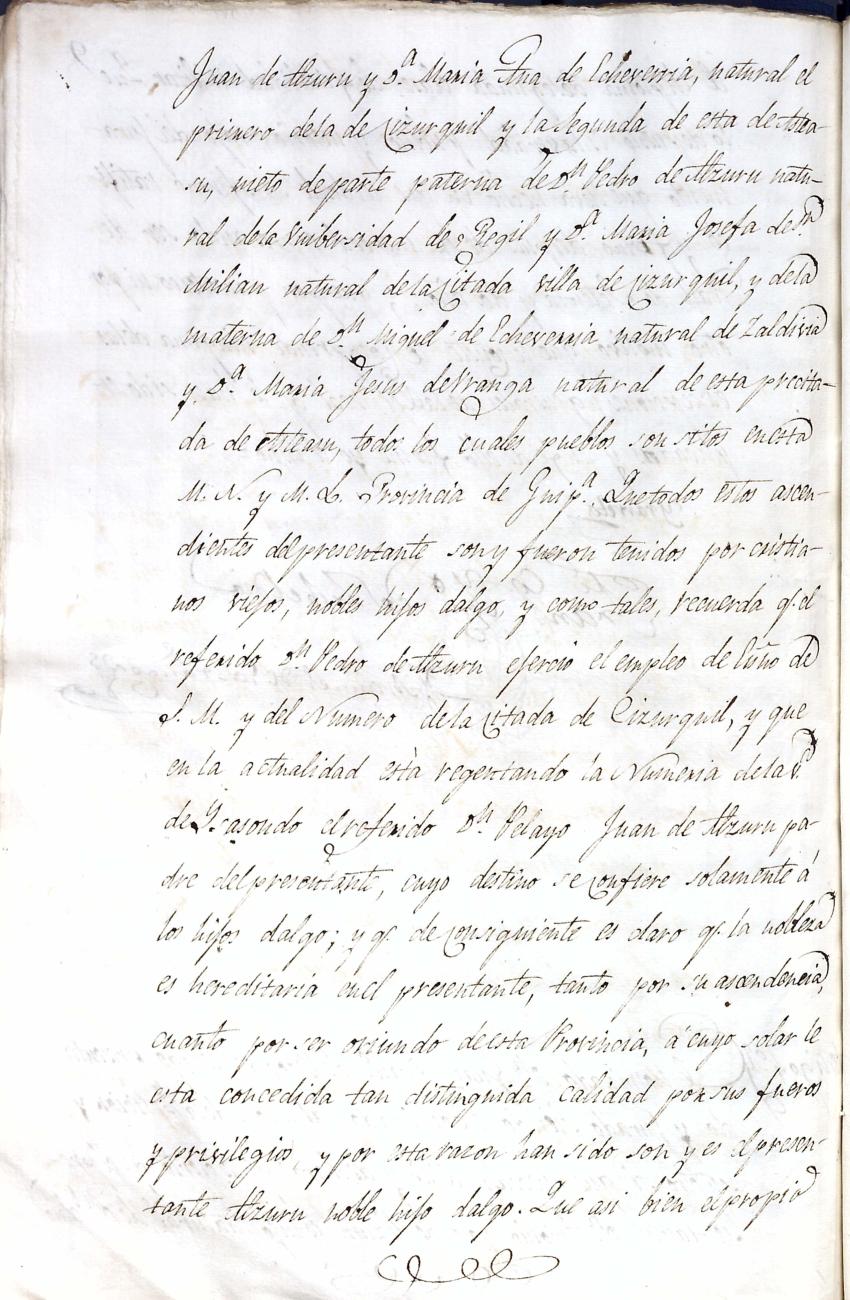 Juan de Alzuru y D.ª Maria Ana de Echeverria, natural el
primero dela de Cizurquil y la segunda de esta de Astea-
su, nieto departe paterna de D.n Pedro de Alzuru natu-
ral dela Vnibersidad de Regil y D.ª Maria Josefa de S.n
Milian natural dela Citada villa de Cizurquil, y dela
materna de D.n Miguel de Echeverria natural de Zaldivia
y D.ª Maria Jesus de Yranga natural de esta precita-
da de Asteasu, todos los cuales pueblos son sitos enesta
M. N. y M. L. Provincia de Guip.ª Quetodos estos ascen-
dientes delpresentante son y fueron tenidos por cristia-
nos viejos, nobles hijos dalgo, y como tales, recuerda q.e el
referido D.n Pedro de Alzuru ejerció el empleo de Esño de
S. M. y del Numero dela Citada de Cizurquil, y que
en la actualidad està regentando la Numeria dela V.ª
de Ycasondo elreferido D.n Pelayo Juan de Alzuru pa-
dre delpresentante, cuyo destino se confiere solamente á
los hijos dalgo; y q.e de consiguiente es claro q.e la nobleza
es hereditaria enel presentante, tanto por su ascendencia,
cuanto por ser oriundo deesta Provincia, á cuyo solar le
esta concedida tan distinguida calidad porsus fueros
y privilegios, y por esta razon han sido son y es elpresen-
tante Alzuru noble hijo dalgo. Que asi bien elpropio